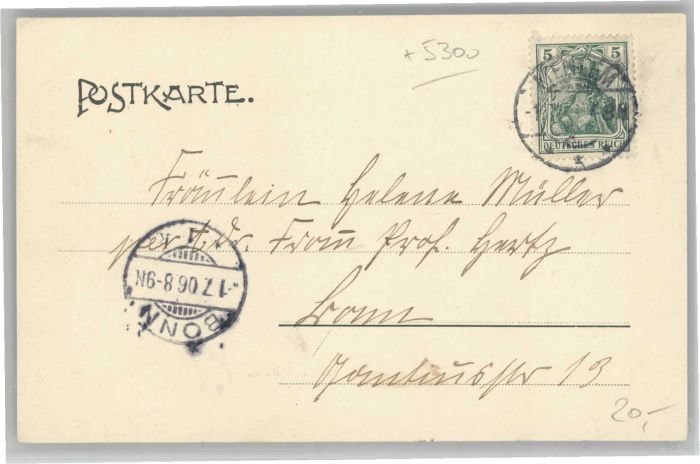 +5300
5 5
DEUTSCHES REICH
POSTKARTE.
Fräulein Helene Müller
per Adr. Frau Prof. Hertz
Bonn
13
BONN
-1.7.06.8-9N
20,-